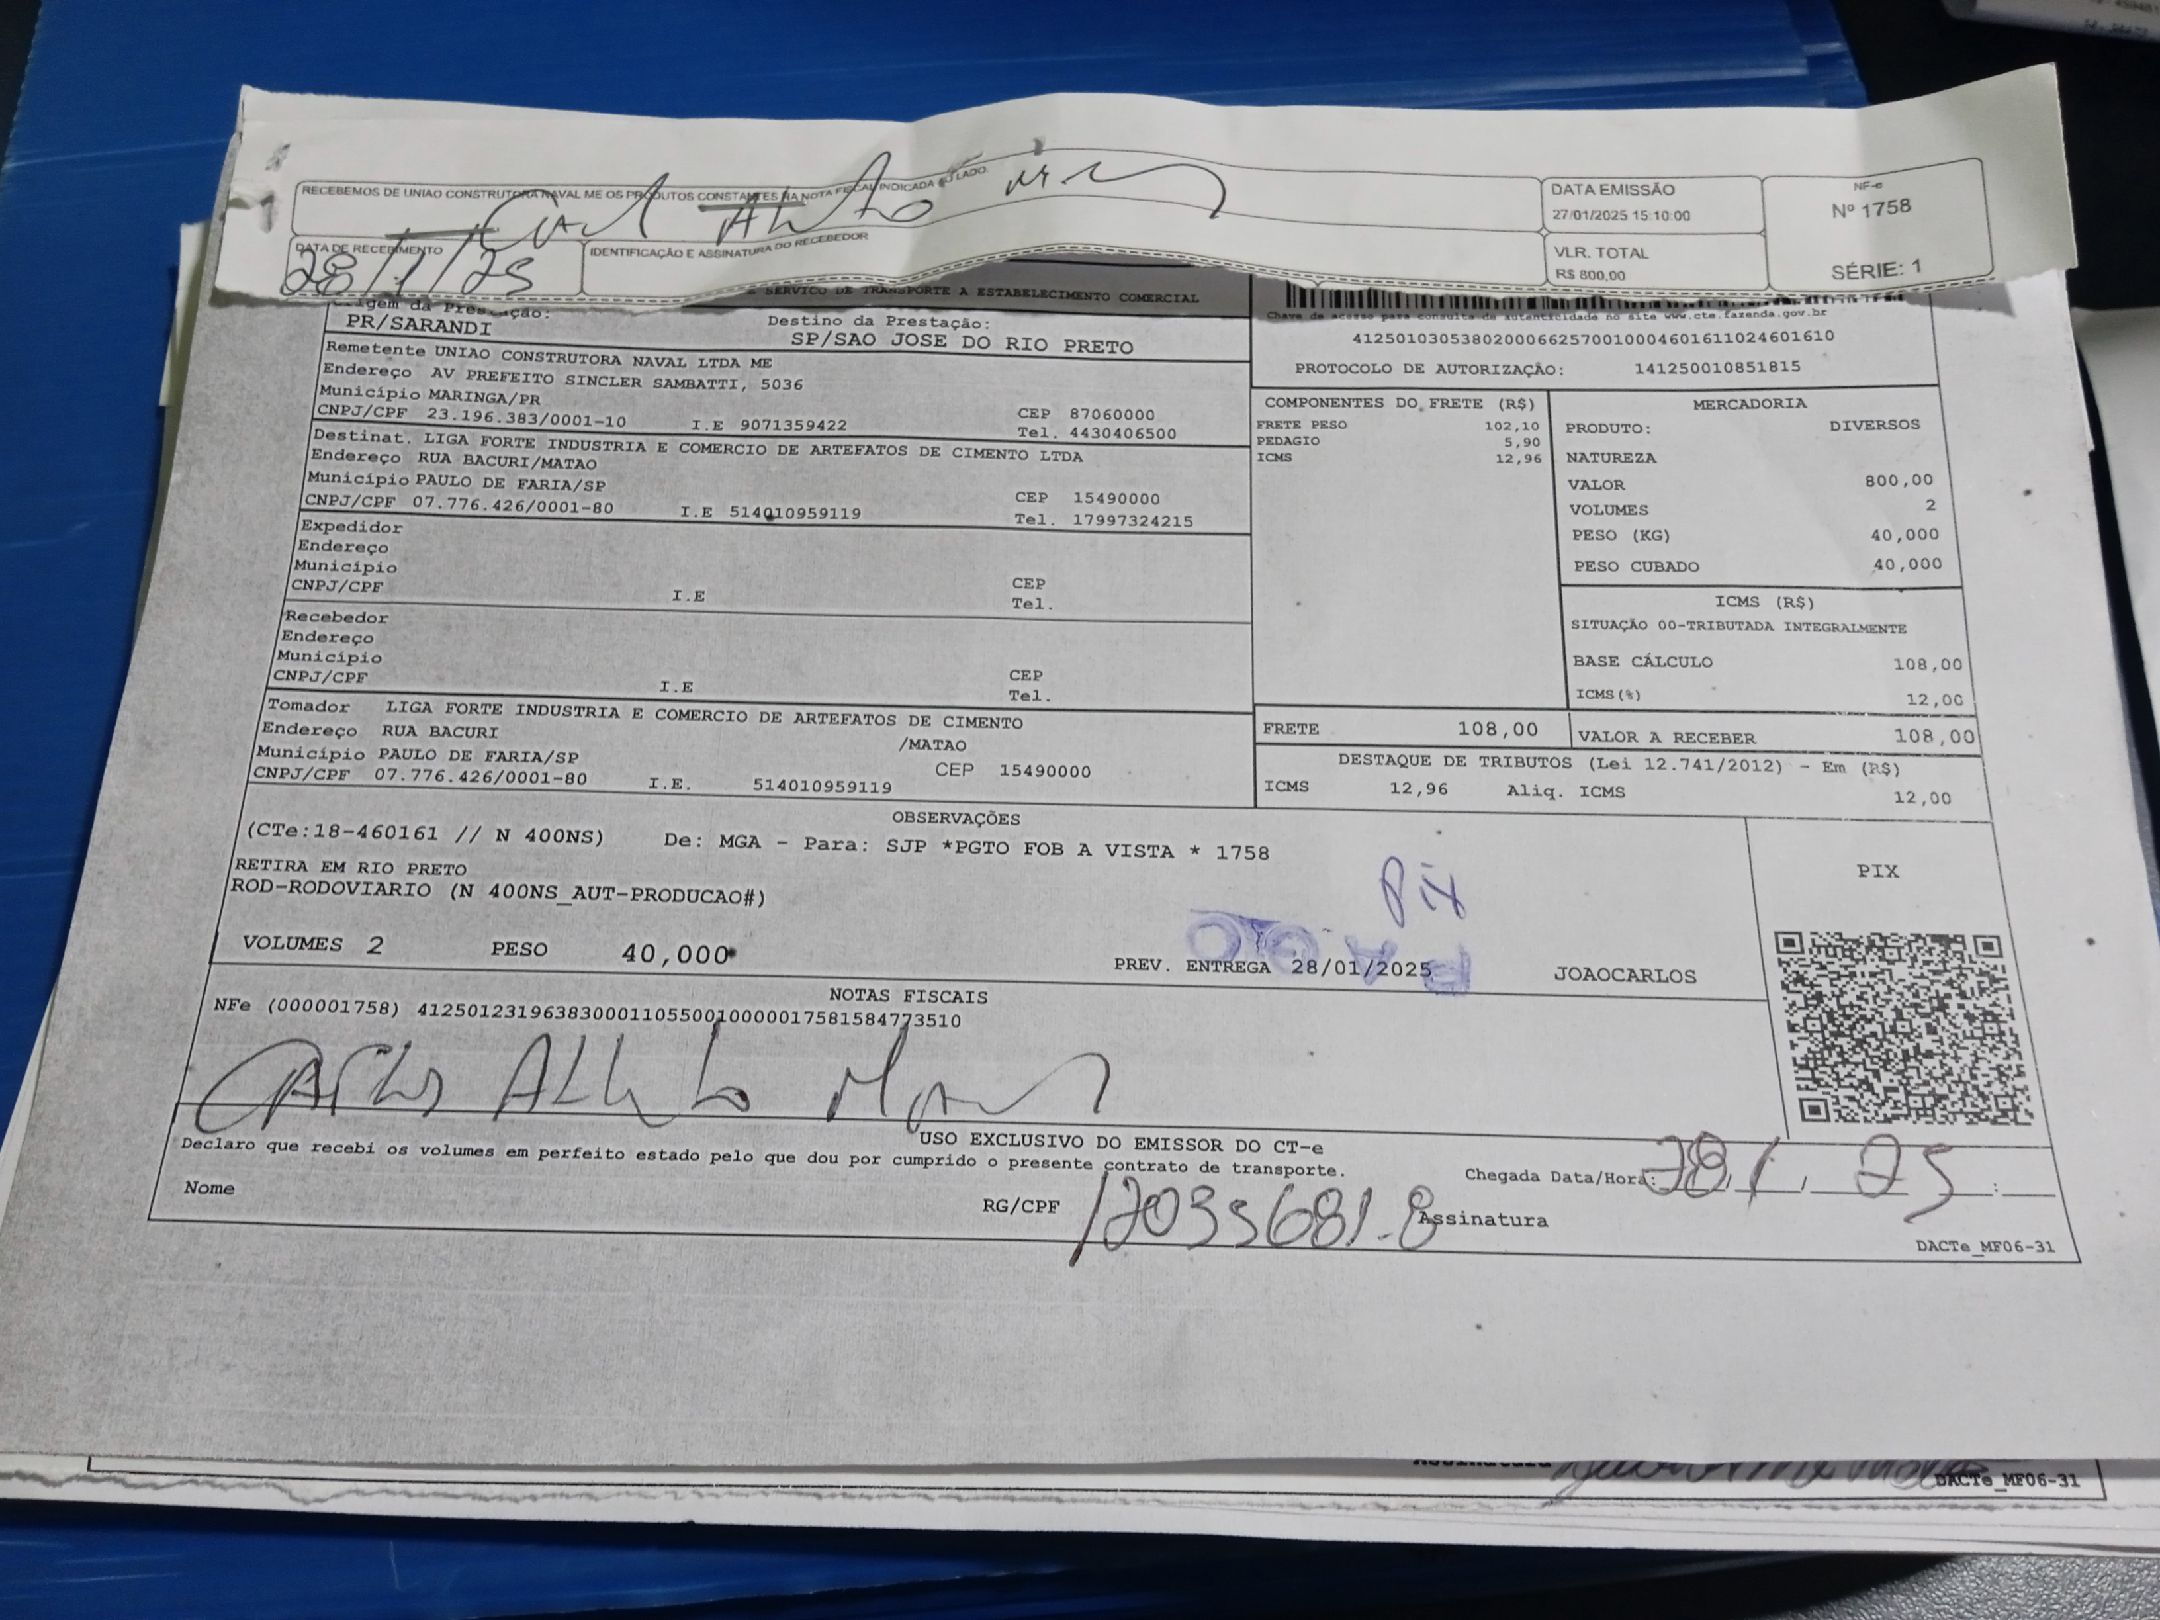 RECEBEMOS DE UNIAO CONSTRUTORA NAVAL ME OS PRODUTOS CONSTANTES NA NOTA FISCAL INDICADA AO LADO.
DATA DE RECEBIMENTO
28/1/25
IDENTIFICAÇÃO E ASSINATURA DO RECEBEDOR
DATA EMISSÃO
27/01/2025 15:10:00
VLR. TOTAL
R$ 800,00
NF-e
Nº 1758
SÉRIE: 1
SERVICO DE TRANSPORTE A ESTABELECIMENTO COMERCIAL
Origem da Prestação:
PR/SARANDI
Destino da Prestação:
SP/SAO JOSE DO RIO PRETO
Chave de acesso para consulta de autenticidade no site www.cte.fazenda.gov.br
41250103053802000662570010004601611024601610
PROTOCOLO DE AUTORIZAÇÃO: 141250010851815
Remetente UNIAO CONSTRUTORA NAVAL LTDA ME
Endereço AV PREFEITO SINCLER SAMBATTI, 5036
Município MARINGA/PR CEP 87060000
CNPJ/CPF 23.196.383/0001-10 I.E 9071359422 Tel. 4430406500
Destinat. LIGA FORTE INDUSTRIA E COMERCIO DE ARTEFATOS DE CIMENTO LTDA
Endereço RUA BACURI/MATAO
Município PAULO DE FARIA/SP CEP 15490000
CNPJ/CPF 07.776.426/0001-80 I.E 514010959119 Tel. 17997324215
Expedidor
Endereço
Município CEP
CNPJ/CPF I.E Tel.
Recebedor
Endereço
Município CEP
CNPJ/CPF I.E Tel.
Tomador LIGA FORTE INDUSTRIA E COMERCIO DE ARTEFATOS DE CIMENTO
Endereço RUA BACURI /MATAO
Município PAULO DE FARIA/SP CEP 15490000
CNPJ/CPF 07.776.426/0001-80 I.E. 514010959119
COMPONENTES DO FRETE (R$)
FRETE PESO 102,10
PEDAGIO 5,90
ICMS 12,96
MERCADORIA
PRODUTO: DIVERSOS
NATUREZA
VALOR 800,00
VOLUMES 2
PESO (KG) 40,000
PESO CUBADO 40,000
ICMS (R$)
SITUAÇÃO 00-TRIBUTADA INTEGRALMENTE
BASE CÁLCULO 108,00
ICMS(%) 12,00
FRETE 108,00
VALOR A RECEBER 108,00
DESTAQUE DE TRIBUTOS (Lei 12.741/2012) - Em (R$)
ICMS 12,96 Aliq. ICMS 12,00
OBSERVAÇÕES
(CTe:18-460161 // N 400NS) De: MGA - Para: SJP *PGTO FOB A VISTA * 1758
RETIRA EM RIO PRETO
ROD-RODOVIARIO (N 400NS_AUT-PRODUCAO#)
Pix
PAGO
VOLUMES 2 PESO 40,000
PREV. ENTREGA 28/01/2025 JOAOCARLOS
PIX
NOTAS FISCAIS
NFe (000001758) 41250123196383000110550010000017581584773510
USO EXCLUSIVO DO EMISSOR DO CT-e
Declaro que recebi os volumes em perfeito estado pelo que dou por cumprido o presente contrato de transporte.
Chegada Data/Hora: 28/1/25
Nome RG/CPF 12035681.8 Assinatura
DACTe_MF06-31
DACTe_MF06-31